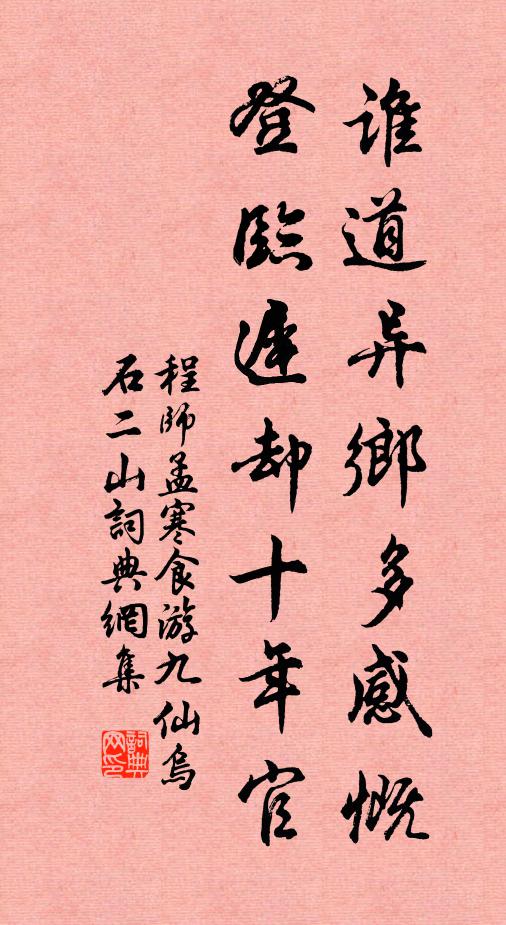 谁道异鄉多感慨
登臨遲却十年官
程師孟寒食游九仙烏
石二山詞典網集
詞典
网印